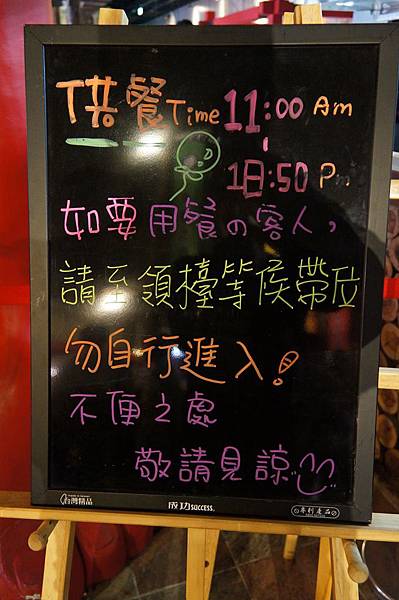 供餐Time 11:00 Am
18:50 Pm
如要用餐の客人,
請至領檯等候帶位
勿自行進入!
不便之處
敬請見諒
台灣精品
成功SUCCESS.
專利產品